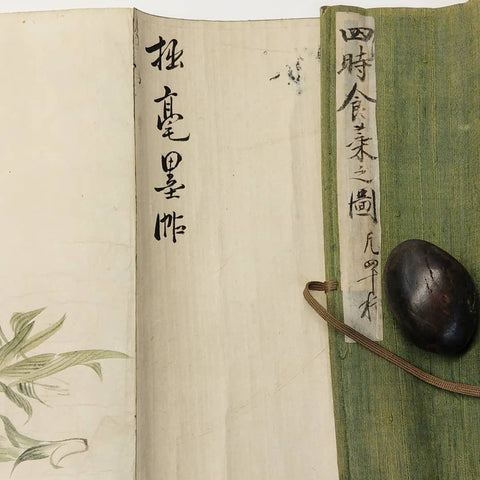 四時食菜之圖 凡四十枚
拙毫墨帖